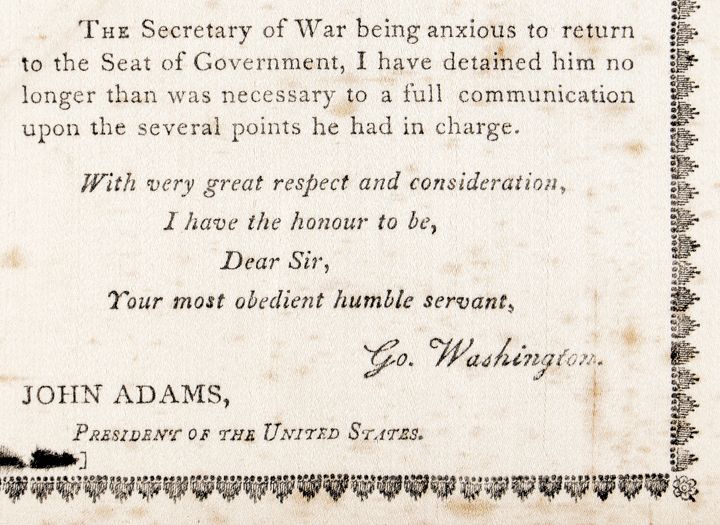 THE Secretary of War being anxious to return
to the Seat of Government, I have detained him no
longer than was necessary to a full communication
upon the several points he had in charge.
With very great respect and consideration,
I have the honour to be,
Dear Sir,
Your most obedient humble servant,
Go. Washington.
JOHN ADAMS,
PRESIDENT OF THE UNITED STATES.
]